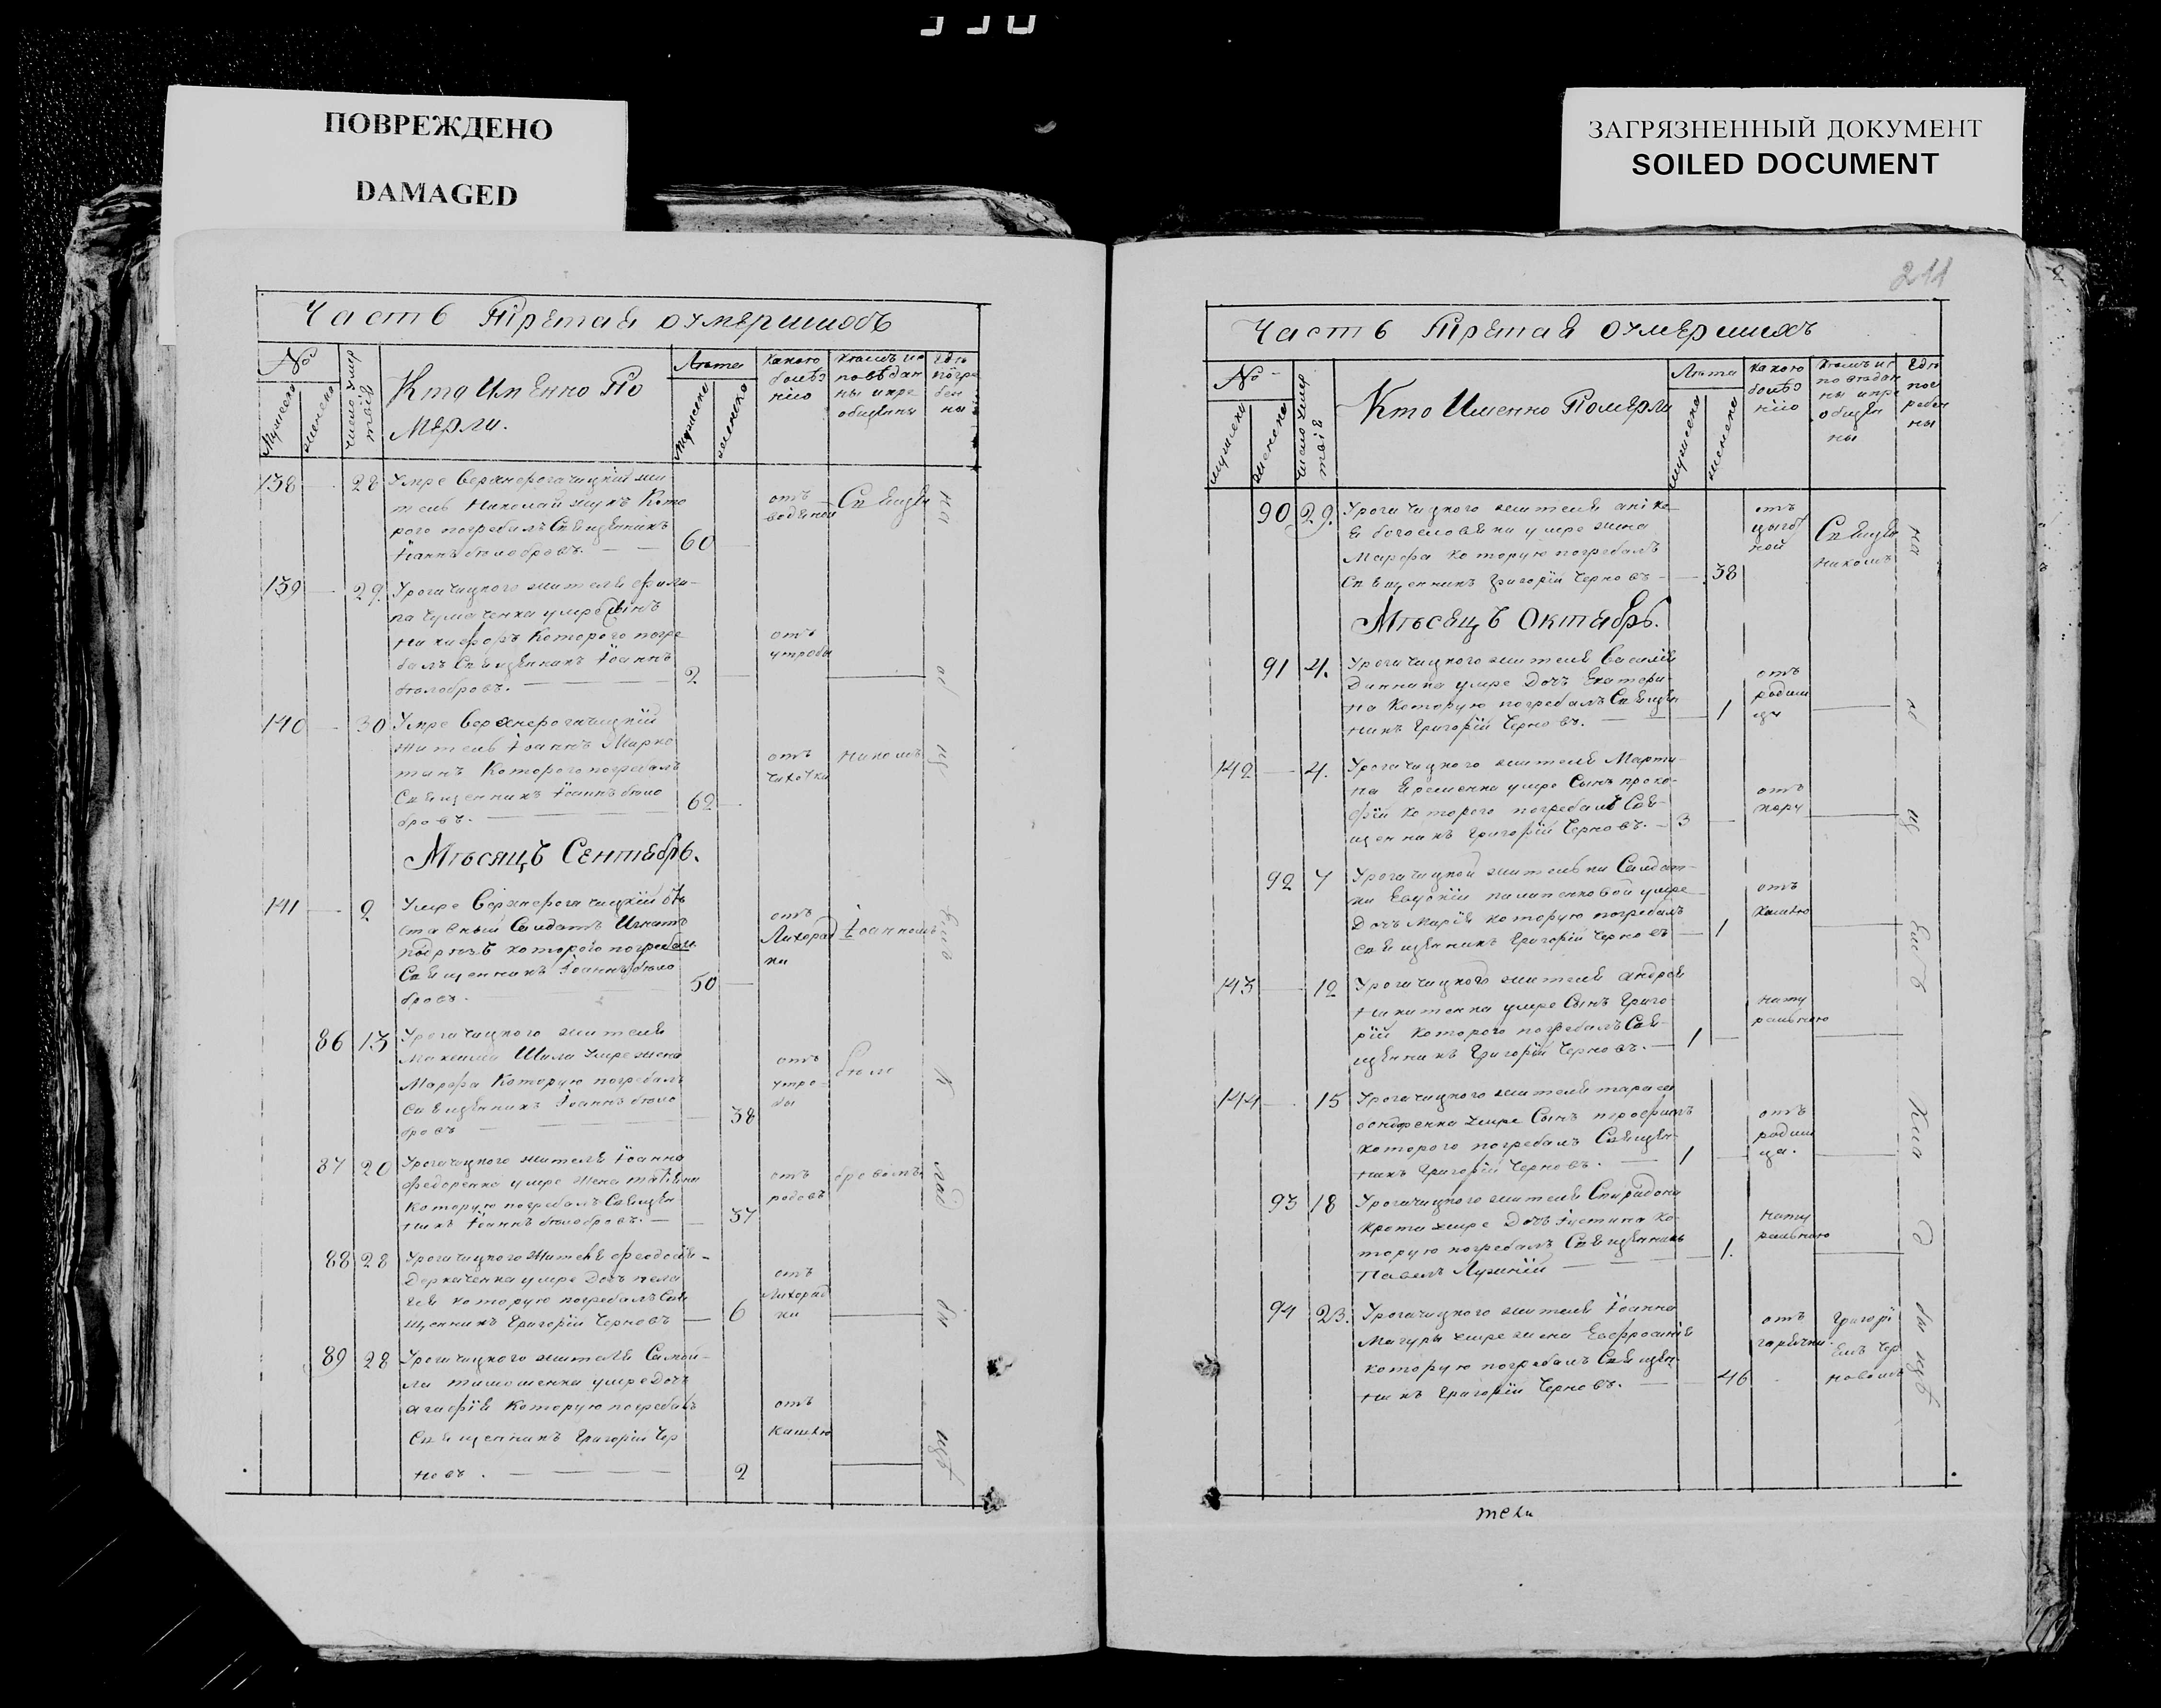 ПОВРЕЖДЕНО
DAMAGED
ЗАГРЯЗНЕННЫЙ ДОКУМЕНТ
SOILED DOCUMENT
Часть Третая оумершихъ
№
мужеска
женска
число умертвiя
Кто Именно По
мерли.
Лѣта
мужеска
женска
какою
болѣз
нiю
Кѣмъ ис
повѣдан
ны и прi
общены
Гдѣ
погре
бен
ны
138 — 28 Умре верхнерогачицкiй жи
тель Николай жукъ Кото
рого погребалъ Священникъ
Iоаннъ бѣлобровъ. — — 60 —
отъ
водяной
Священ
на
139 — 29. Урогачицкого жителя фили-
па чумаченка умре Сынъ
Никифоръ Которого погре
балъ Священникъ Iоаннъ
бѣлобровъ. — 2 —
отъ
утробы
об
140 — 30 Умре верхнерогачицкiй
житель Iоаннъ Марко
танъ Которого погребалъ
Священникъ Iоаннъ бѣло
бровъ. — 62 —
отъ
чахотки
Никомъ
щ
Мѣсяцъ Сентябрь.
141 — 9 Умре Верхнерогачицкiй от
ставный Салдатъ Игнатъ
которого погребалъ
Священникъ Iоаннъ бѣло
бровъ. — 50 —
отъ
Лихорад
ки
Iоанномъ
86 13 Урогачицкого жителя
Максима Шила умре жена
Марфа Которую погребалъ
Священникъ Iоаннъ бѣло
бровъ — 38
отъ
утро
бы
бѣло
К
87 20 Урогачицкого жителя Iоанна
федоренка умре жена татiяна
Которую погребалъ Священ
никъ Iоаннъ бѣлобровъ. — 37
отъ
родовъ
бровомъ
лад
88 28 Урогачицкого жителя феодосiя
Деркаченка умре Дочь пела
гея которую погребалъ Свя
щенникъ Григорiй Черновъ — 6
отъ
Лихорад
ки
би
89 28 Урогачицкого жителя Самой-
ла тимошенка умре дочь
агафiя Которую погребалъ
Священникъ Григорiй Чер
новъ. — 2
отъ
Кашлю
щѣ
211
Часть Третая оумершихъ
№
мужеска
женска
число умертвiя
Кто Именно Померли
Лѣта
мужеска
женска
какою
болѣз
нiю
Кѣмъ ис
повѣдан
ны и прi
общен
ны
Гдѣ
пог
ребен
ны
90 29. Урогачицкого жителя
богословеka умре жена
Марфа которую погребалъ
Священникъ Григорiй Черновъ — 38
отъ
цынгот
ной
Священ
Никомъ
на
Мѣсяцъ Октябрь.
91 4. Урогачицкого жителя Василiя
Динника умре Дочь Екатери-
на Которую погребалъ Священ
никъ Григорiй Черновъ. — 1
отъ
родим
цу
об
142 — 4. Урогачицкого жителя Марти-
на Еременка умре Сынъ проко-
фiй Которого погребалъ Свя-
щенникъ Григорiй Черновъ. — 3 —
отъ
кору
щ
92 7 Урогачицкой жительки Салдат-
ки Евдокiи палатенковой умре
Дочь Марiя которую погребалъ
священникъ Григорiй Черновъ — 1
отъ
Кашлю
143 — 12 Урогачицкого жителя андрея
Никитенка умре Сынъ Григо
рiй которого погребалъ Свя-
щенникъ Григорiй Черновъ. — 1 —
нату
рально
144 — 15 Урогачицкого жителя тараса
бондаренка умре Сынъ
которого погребалъ Священ-
никъ Григорiй Черновъ. — 1 —
отъ
родим
ца.
Кла
93 18 Урогачицкого жителя Спиридона
Крота умре Дочь Iустина Ко-
торую погребалъ Священникъ
Павелъ — 1.
нату
рально
д
94 23. Урогачицкого жителя Iоанна
Магуры умре жена Евфросинiя
которую погребалъ Священ-
никъ Григорiй Черновъ. — 46
отъ
горячки
Григорi
емъ Чер
новымъ
би щѣ